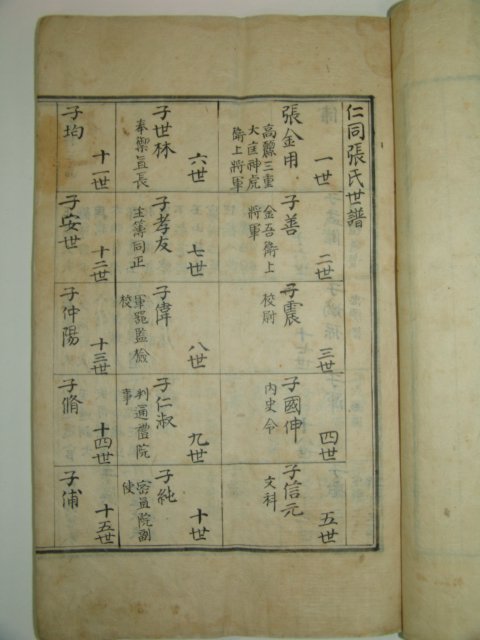 仁同張氏世譜
一世
張金用
高麗三重
大匡神虎
衛上將軍
二世
子善
金吾衛上
將軍
三世
子震
校尉
四世
子國伸
內史令
五世
子信元
文科
六世
子世林
奉禦直長
七世
子孝友
主簿同正
八世
子偉
軍器監檢
校
九世
子仁淑
判通禮院
事
十世
子純
密直院副
使
十一世
子均
十二世
子安世
十三世
子仲陽
十四世
子脩
十五世
子浦